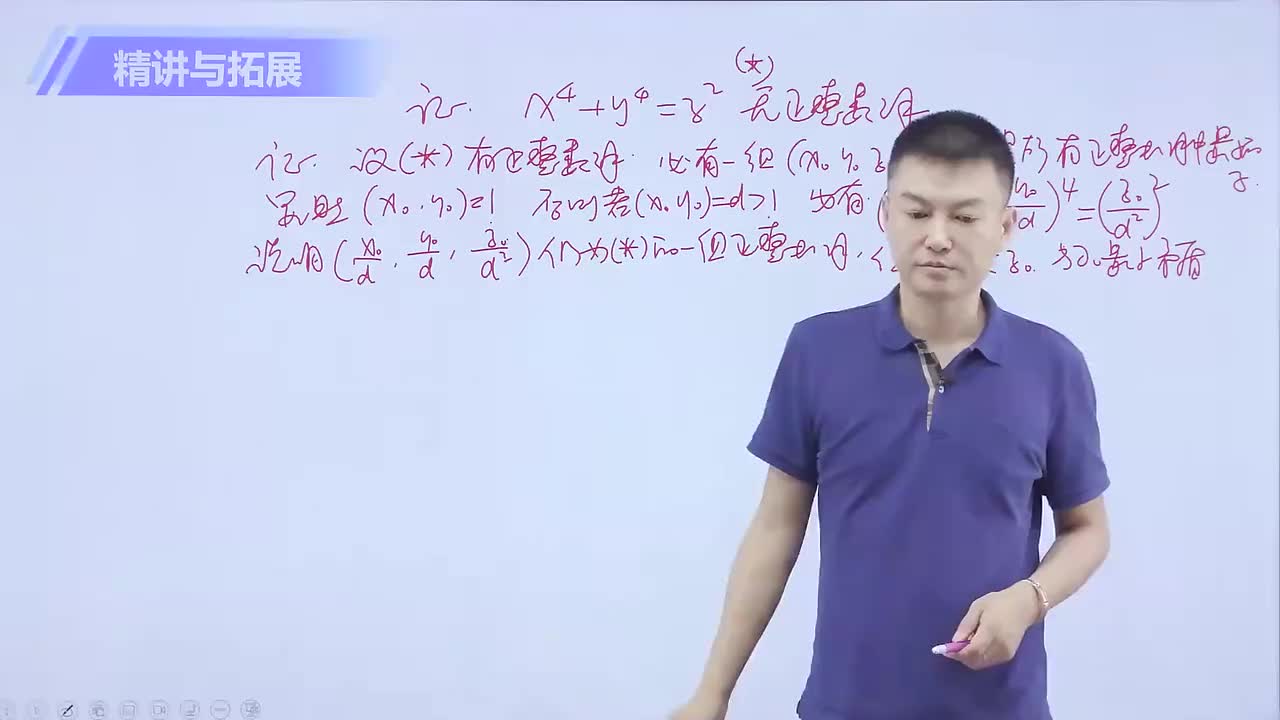 精讲与拓展
(*)
证. x⁴+y⁴=z² 无正整数解
证. 设(*)有正整数解. 必有一组(x₀ y₀ z 有正整数解中最小
z.
则 (x₀, y₀)=1 否则若(x₀ y₀)=d>1 必有 ( y₀/d)⁴=(z₀/d²)²
说明(x₀/d, y₀/d, z₀/d²)仍为(*)的一组正整数解, z₀ 与z₀最小矛盾